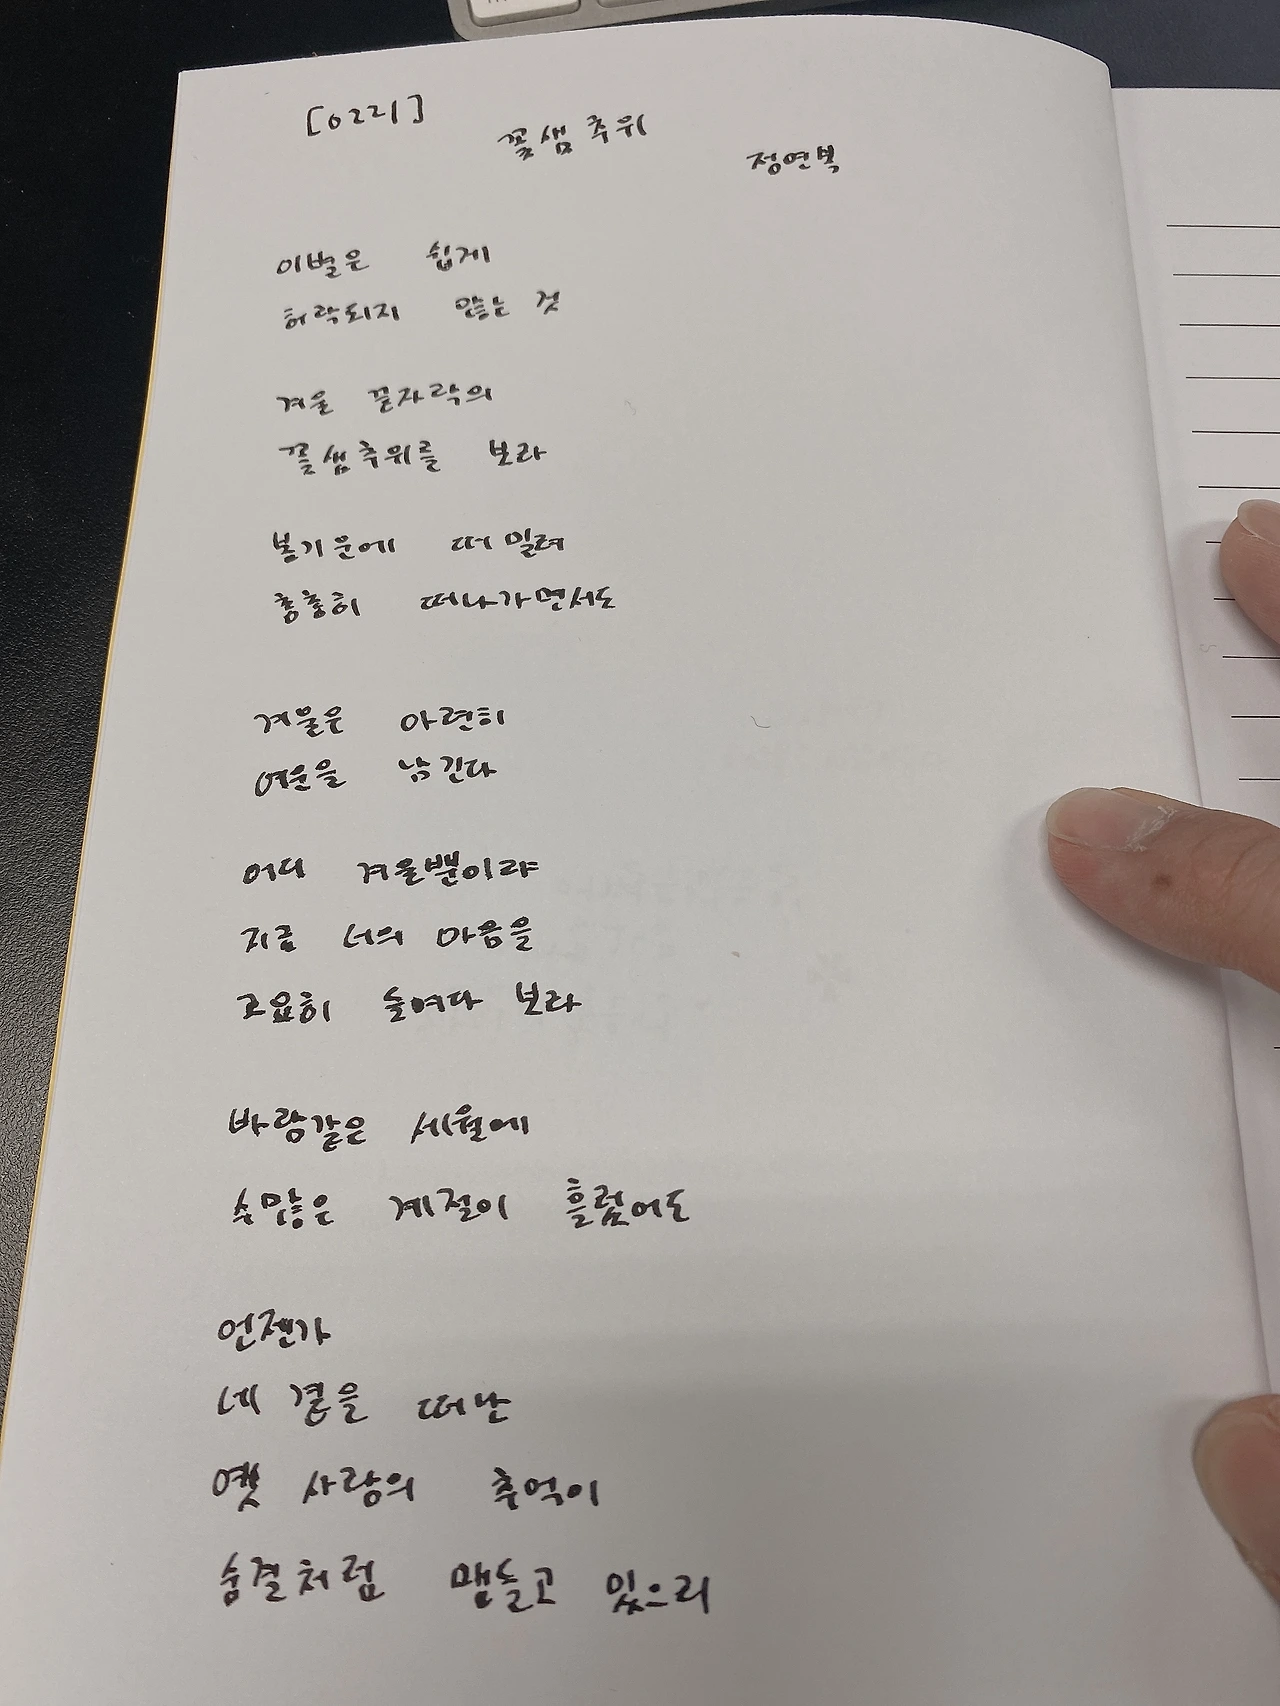 [0221]
꽃샘추위
정연복
이별은 쉽게
허락되지 않는 것
겨울 끝자락의
꽃샘추위를 보라
봄기운에 떠밀려
총총히 떠나가면서도
겨울은 아련히
여운을 남긴다
어디 겨울뿐이랴
지금 너의 마음을
고요히 들여다 보라
바람같은 세월에
수많은 계절이 흘렀어도
언젠가
네 곁을 떠난
옛 사랑의 추억이
숨결처럼 맴돌고 있으리